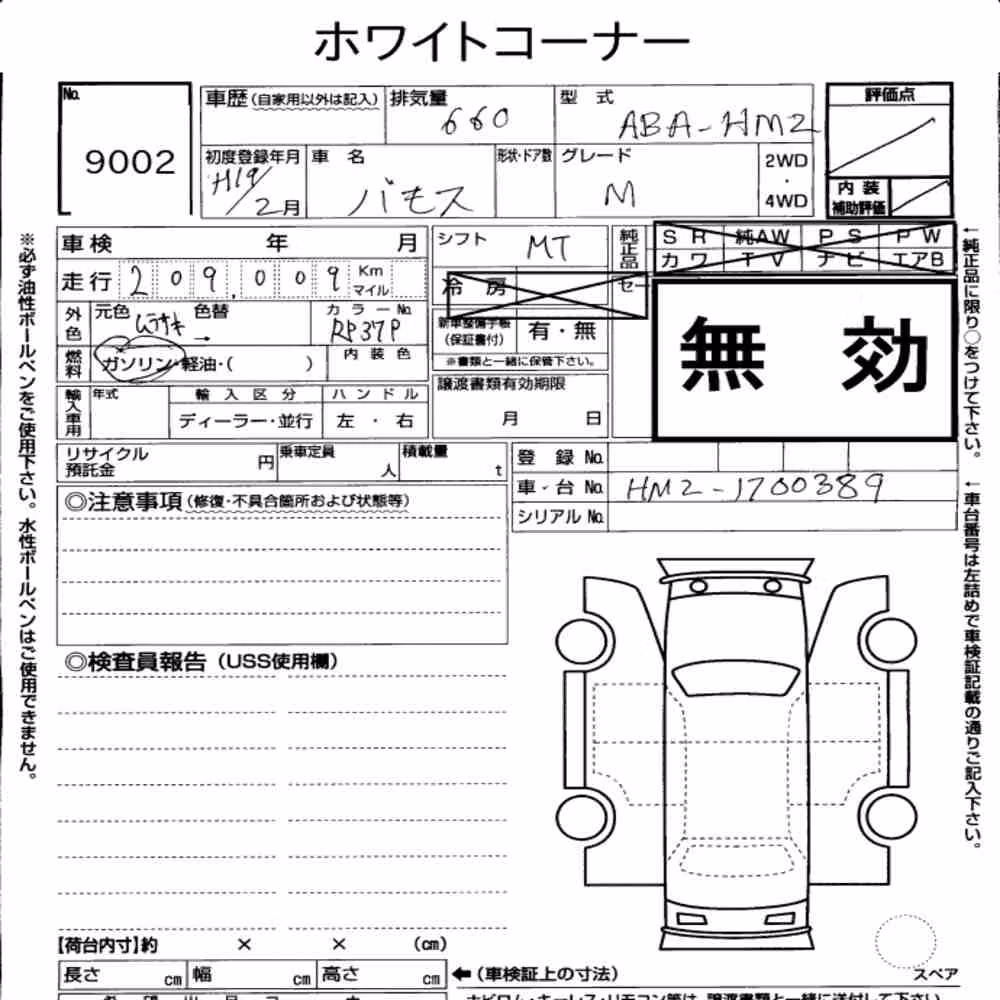 ホワイトコーナー
No. 9002
車歴(自家用以外は記入) 排気量 660 型式 ABA-HM2
評価点
初度登録年月 H19/2月 車名 バモス 形状・ドア数 グレード M 2WD・4WD
内装補助評価
車検 年 月 シフト MT 純正品 SR 純AW PS PW
カワ TV ナビ エアB
走行 209,009 Km マイル 冷房 セー
無効
外色 元色 ムラサキ 色替 → カラーNo. RP37P
新車整備手帳(保証書付) 有・無
※書類と一緒に保管下さい。
燃料 ガソリン・軽油・( ) 内装色
譲渡書類有効期限
月 日
輸入車用 年式 輸入区分 ハンドル
ディーラー・並行 左・右
リサイクル預託金 円 乗車定員 人 積載量 t
登録No.
車台No. HM2-1700389
シリアルNo.
◎注意事項(修復・不具合箇所および状態等)
◎検査員報告(USS使用欄)
※必ず油性ボールペンをご使用下さい。水性ボールペンはご使用できません。
←純正品に限り○をつけて下さい。
←車台番号は左詰めで車検証記載の通りご記入下さい。
【荷台内寸】約 × × (cm)
スペア
長さ cm 幅 cm 高さ cm ←(車検証上の寸法)